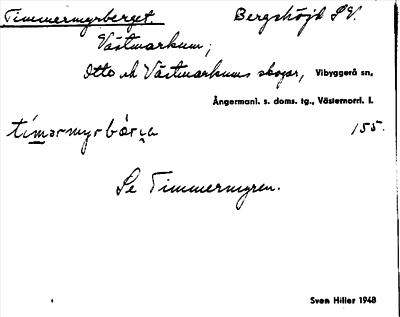 Timmermyrberget. Bergshöjd S.V.
Västmarkum;
Otto och Västmarkums skogar, Vibyggerå sn,
Ångermanl. s. doms. tg., Västernorrl. l.
tímərmyrbárɪa 155.
Se Timmermyren.
Sven Hiller 1948